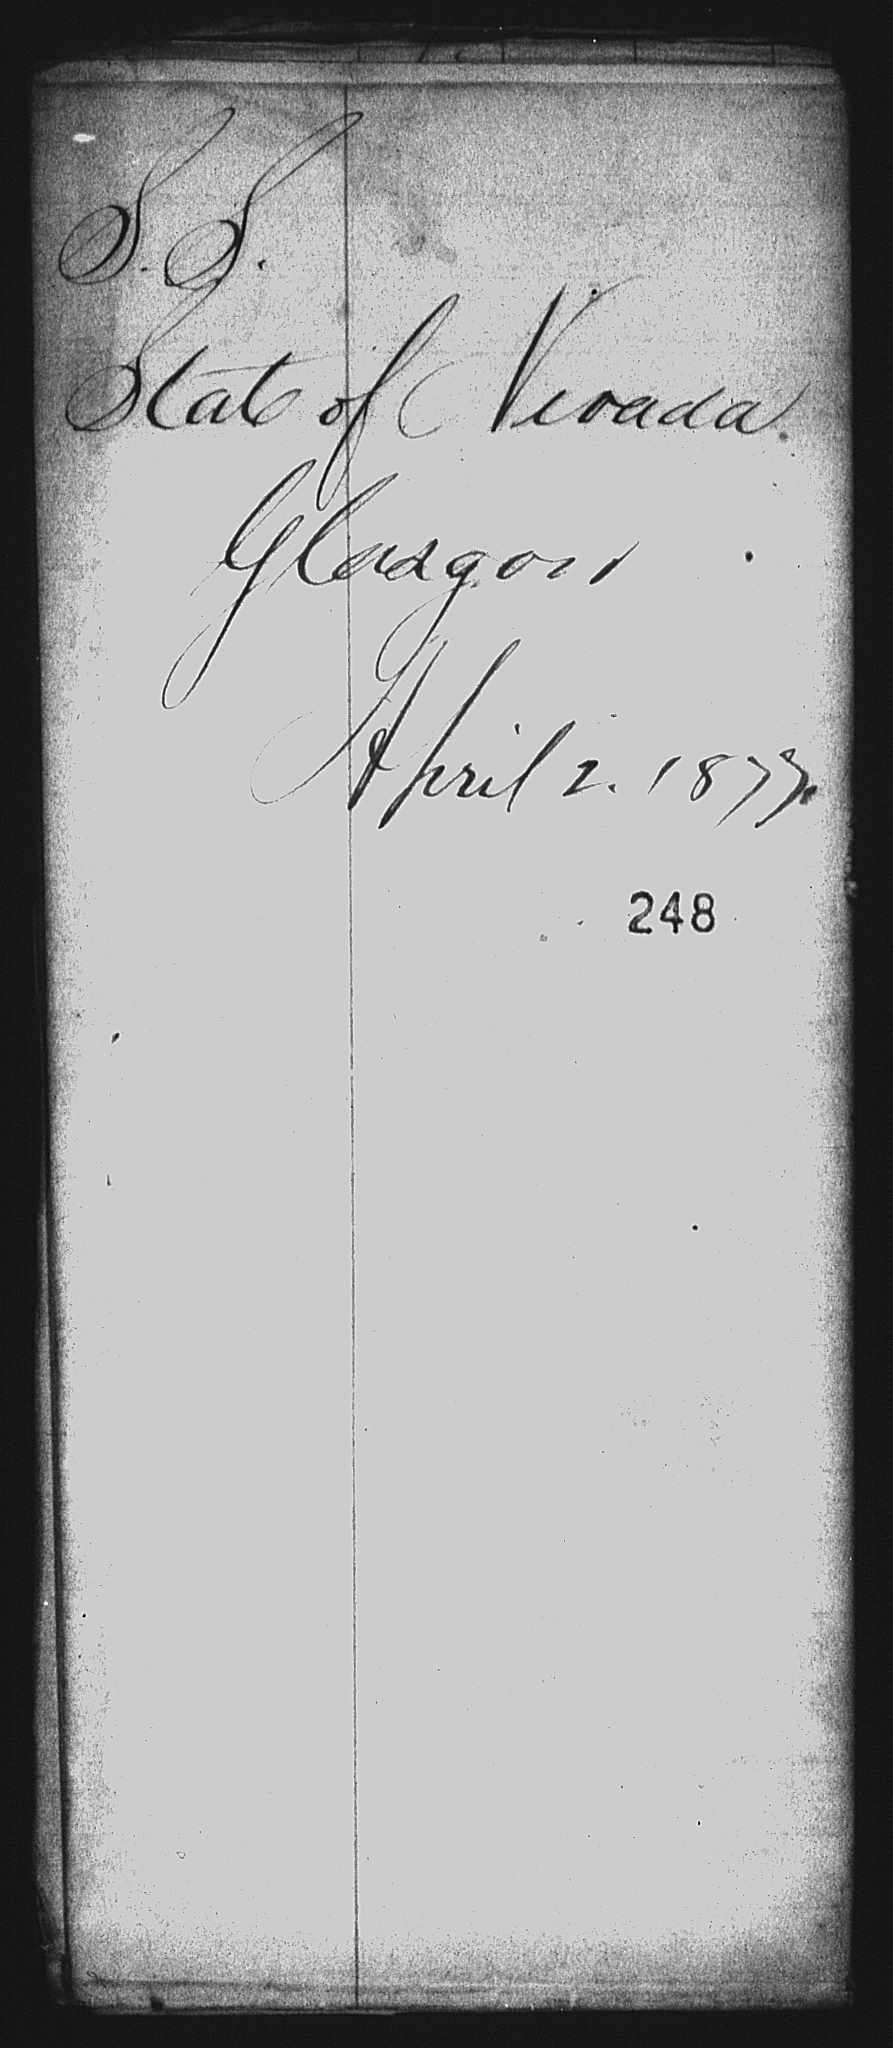 S.S.
State of Nevada.
Glasgow
April 2. 1877.
248